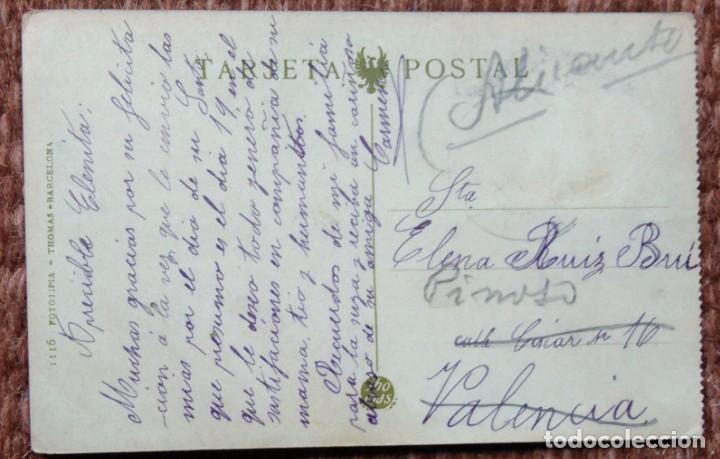 TARJETA POSTAL
1116 FOTOTIPIA - THOMAS - BARCELONA
Apreciable Elenita:
Muchas gracias por su felicita
-ción á la vez que le envio las
mias por el dia de su Santo
que proximo es el dia 19 en el
que le deseo todo genero de
satisfaciones en compañia de su
mama, tio y humanitos.
Recuerdos de mi familia
para la suya y reciba un cariñoso
abrazo de su amiga Carmen
Alicante
Sta
Elena Ruiz Brú
Pinoso
calle Ciscar nº 16
Valencia
THO
MAS
todocoleccion
todocoleccion.net